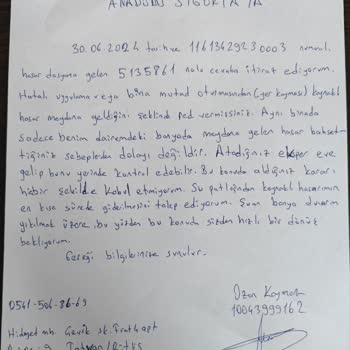 ANADOLU SİGORTA'YA
30.06.2024 tarih ve 1161342923 0003 numaralı
hasar dosyama gelen 5135861 nolu cevaba itiraz ediyorum.
Hatalı uygulama veya bina mutad oturmasından (yer kayması) kaynaklı
hasar meydana geldiğini şeklinde red vermişsiniz. Aynı binada
sadece benim dairemdeki banyoda meydana gelen hasar bahset-
tiğiniz sebeplerden dolayı değildir. Atadığınız eksper eve
gelip bunu yerinde kontrol edebilir. Bu konuda aldığınız kararı
hiçbir şekilde kabul etmiyorum. Su patlağından kaynaklı hasarımın
en kısa sürede giderilmesini talep ediyorum. Şuan banyo duvarım
yıkılmak üzere, bu yüzden bu konuda sizden hızlı bir dönüş
bekliyorum.
Gereği bilgilerinize sunulur.
0541-506-86-69
Ozan Kaymak
10043999162
Hidayet mh. Çevik sk. Fırat apt